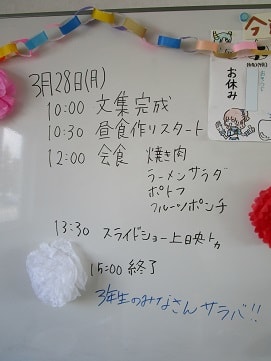 3月28日(月)
10:00 文集完成
10:30 昼食作りスタート
12:00 会食 焼き肉
ラーメンサラダ
ポトフ
フルーツポンチ
13:30 スライドショー上映
15:00 終了
3年生のみなさんサラバ!!
お休み